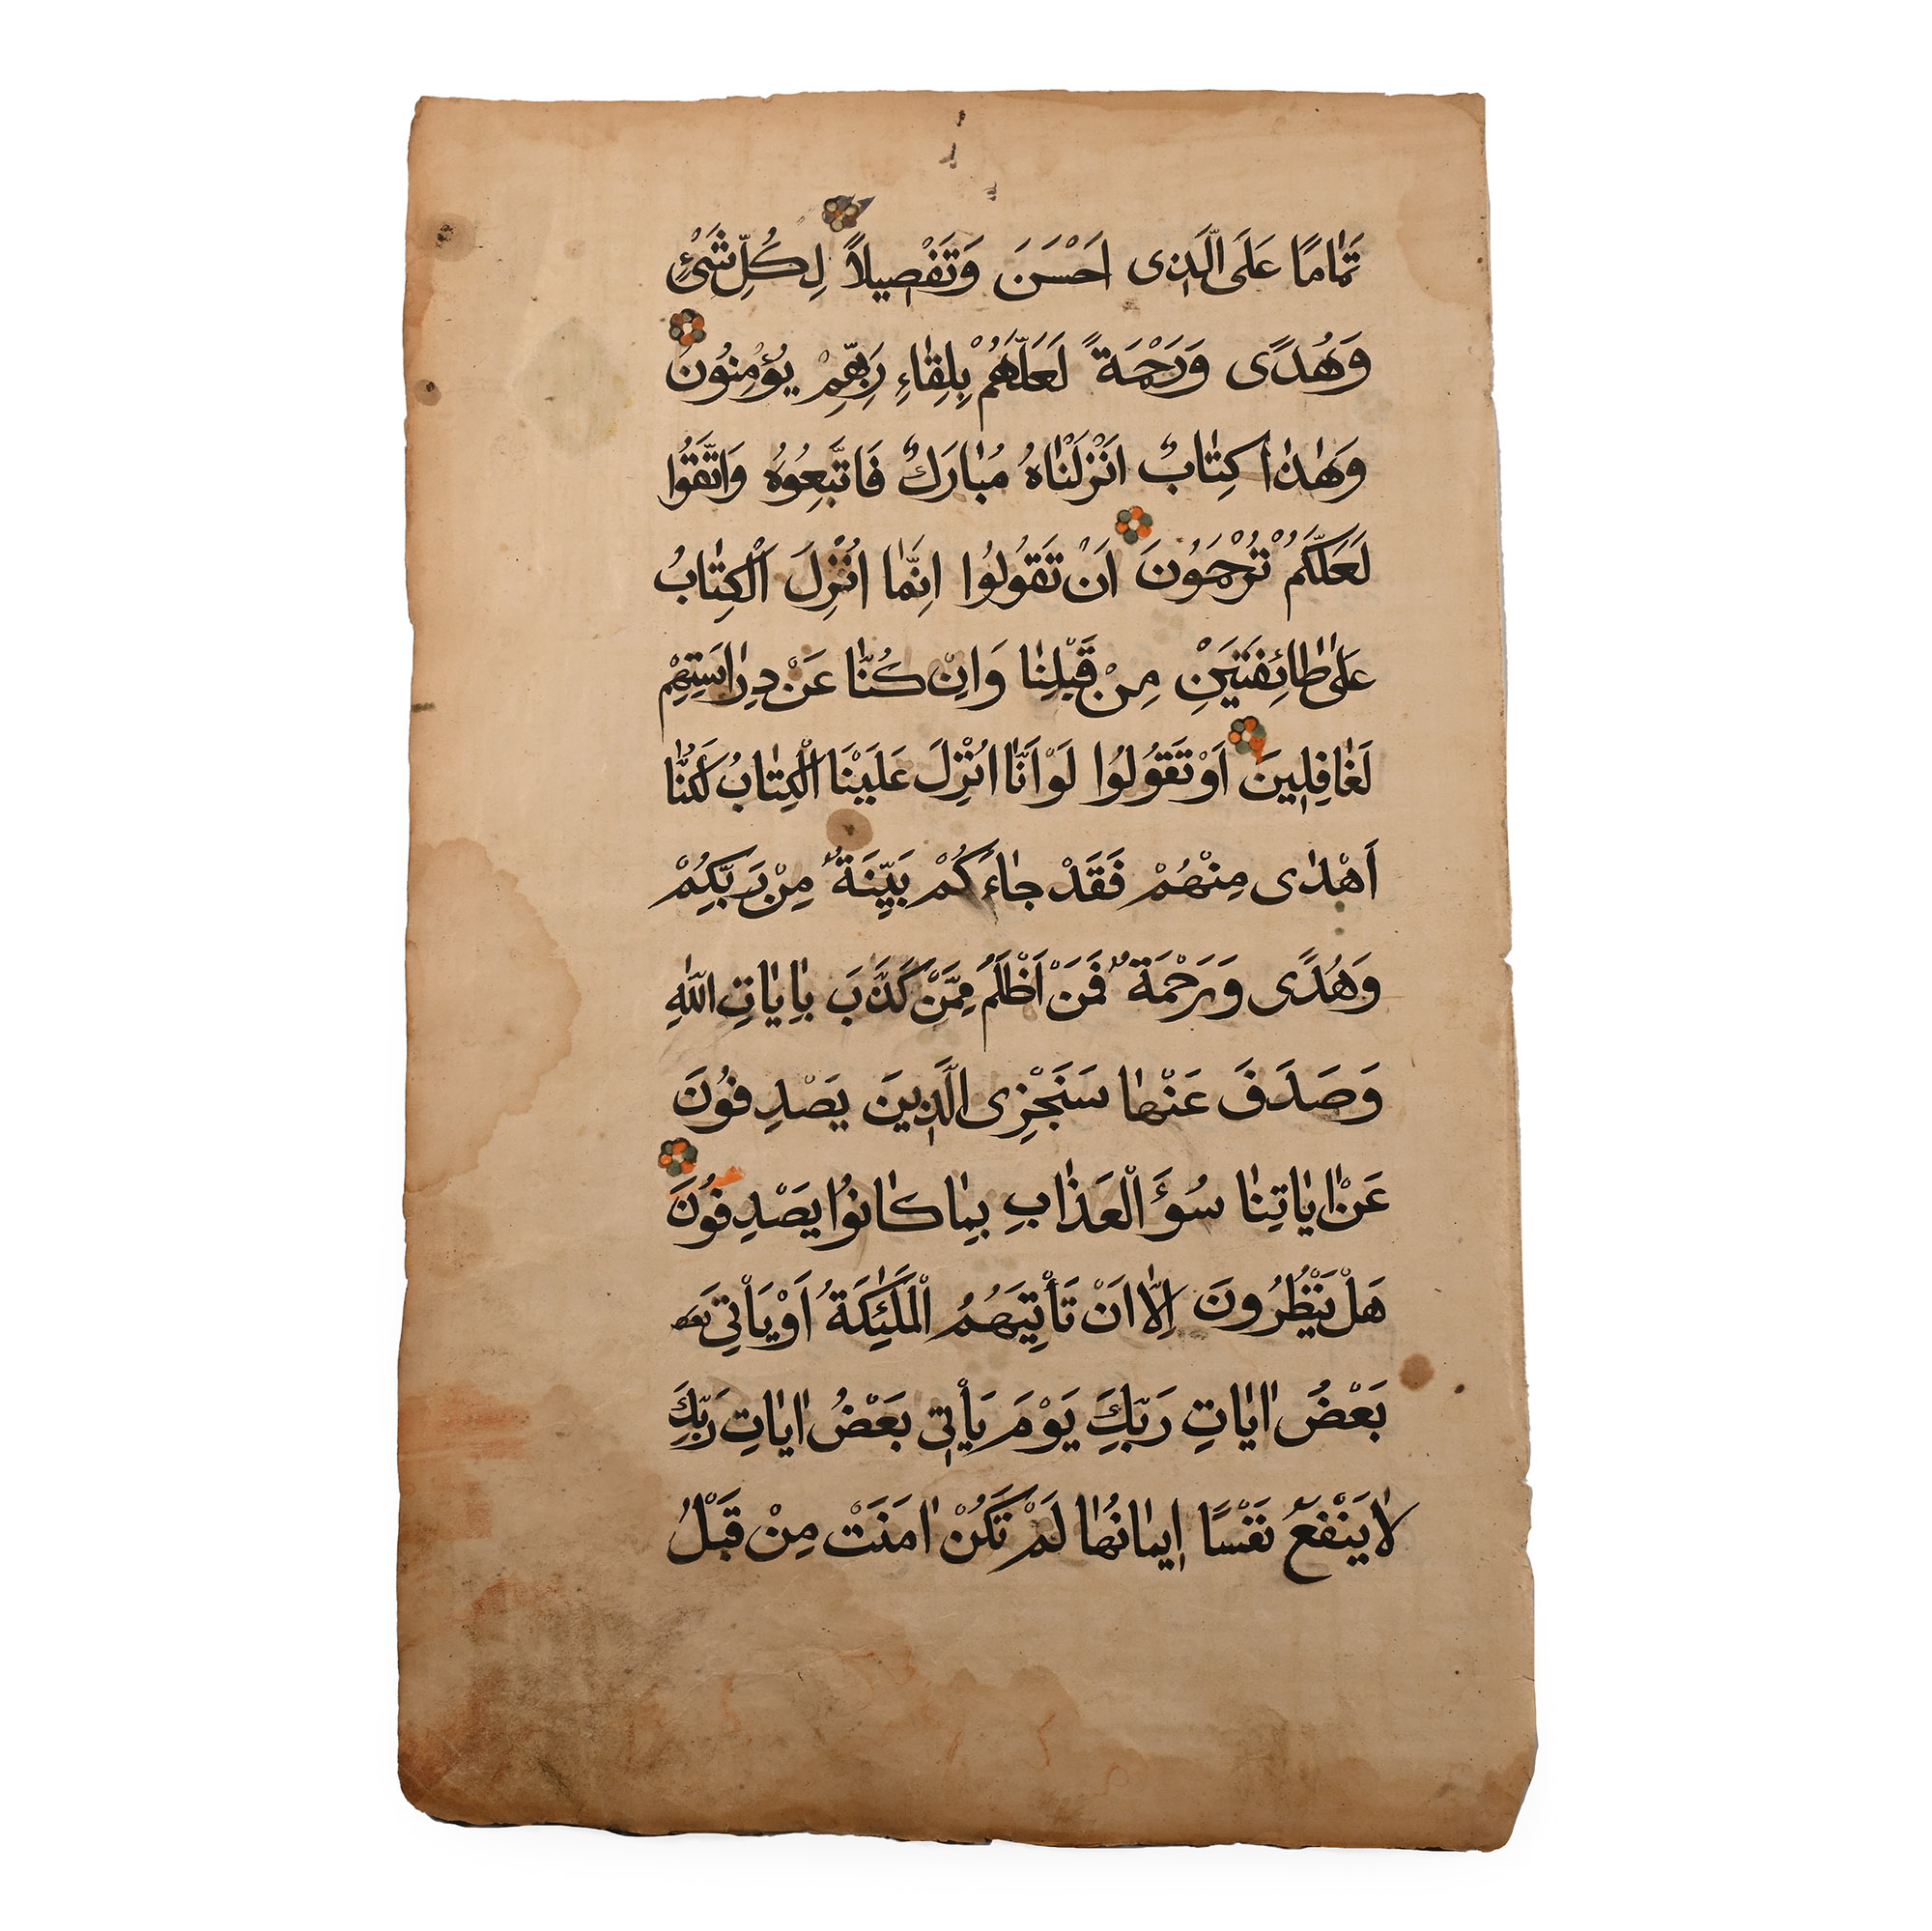 تَمَامًا عَلَى الَّذِى اَحْسَنَ وَتَفْصِيلاً لِكُلِّ شَىْءٍ
وَهُدًى وَرَحْمَةً لَعَلَّهُمْ بِلِقَاءِ رَبِّهِمْ يُؤْمِنُونَ
وَهٰذَا كِتَابٌ اَنْزَلْنَاهُ مُبَارَكٌ فَاتَّبِعُوهُ وَاتَّقُوا
لَعَلَّكُمْ تُرْحَمُونَ اَنْ تَقُولُوا اِنَّمَا اُنْزِلَ الْكِتَابُ
عَلٰى طَائِفَتَيْنِ مِنْ قَبْلِنَا وَاِنْ كُنَّا عَنْ دِرَاسَتِهِمْ
لَغَافِلِينَ اَوْ تَقُولُوا لَوْ اَنَّا اُنْزِلَ عَلَيْنَا الْكِتَابُ لَكُنَّا
اَهْدٰى مِنْهُمْ فَقَدْ جَاءَكُمْ بَيِّنَةٌ مِنْ رَبِّكُمْ
وَهُدًى وَرَحْمَةٌ فَمَنْ اَظْلَمُ مِمَّنْ كَذَّبَ بِاٰيَاتِ اللّٰهِ
وَصَدَفَ عَنْهَا سَنَجْزِى الَّذِينَ يَصْدِفُونَ
عَنْ اٰيَاتِنَا سُوءَ الْعَذَابِ بِمَا كَانُوا يَصْدِفُونَ
هَلْ يَنْظُرُونَ اِلَّا اَنْ تَأْتِيَهُمُ الْمَلٰئِكَةُ اَوْ يَأْتِىَ بعض
بَعْضُ اٰيَاتِ رَبِّكَ يَوْمَ يَأْتِى بَعْضُ اٰيَاتِ رَبِّكَ
لَا يَنْفَعُ نَفْسًا اِيمَانُهَا لَمْ تَكُنْ اٰمَنَتْ مِنْ قَبْلُ